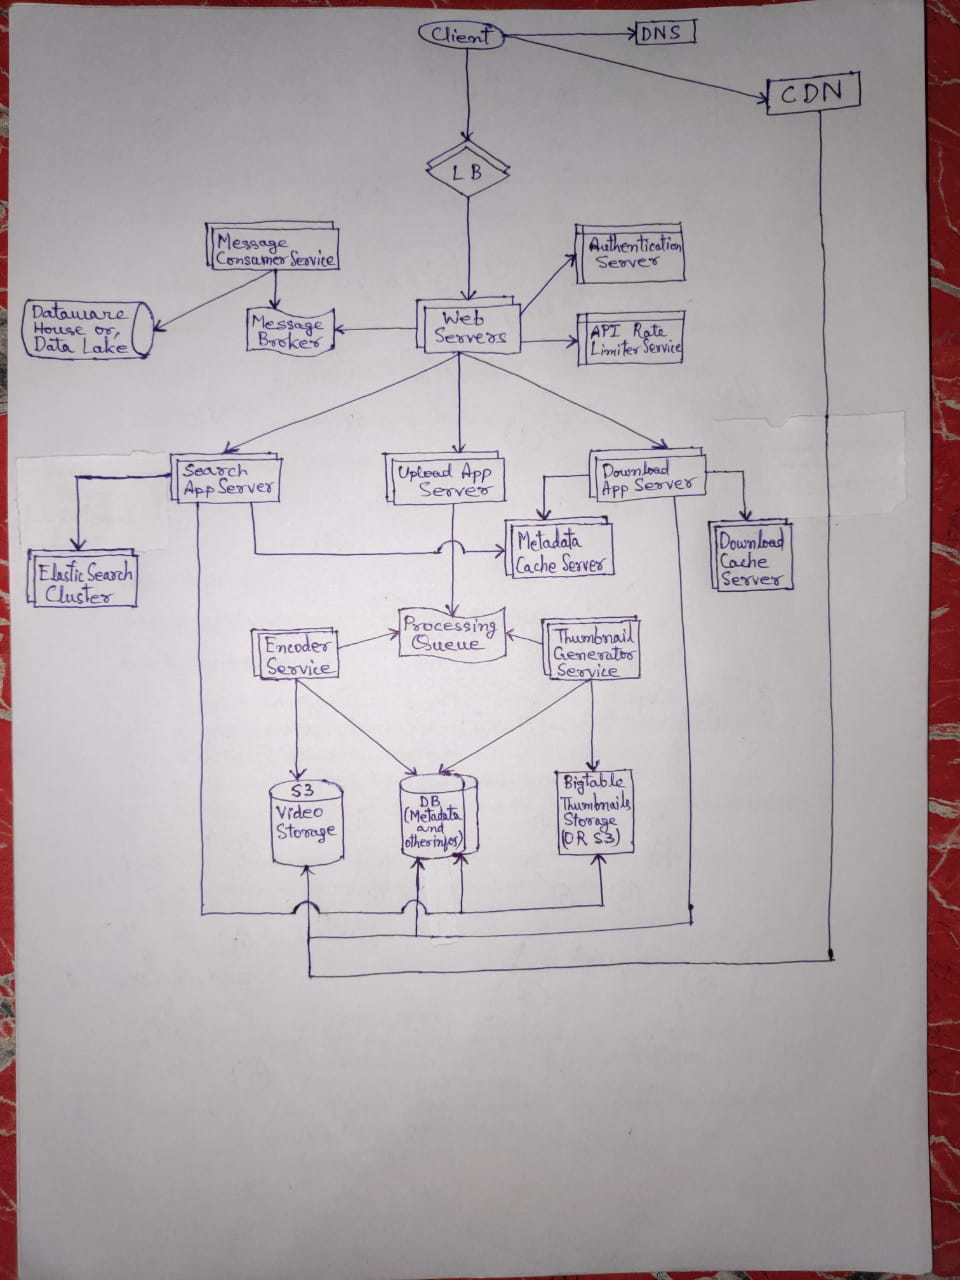 Client
DNS
CDN
LB
Message
Consumer Service
Authentication
Server
Dataware
House or,
Data Lake
Message
Broker
Web
Servers
API Rate
Limiter Service
Search
App Server
Upload App
Server
Download
App Server
Elastic Search
Cluster
Metadata
Cache Server
Download
Cache
Server
Encoder
Service
Processing
Queue
Thumbnail
Generator
Service
S3
Video
Storage
DB
(Metadata
and
other infos)
Bigtable
Thumbnails
Storage
(OR S3)